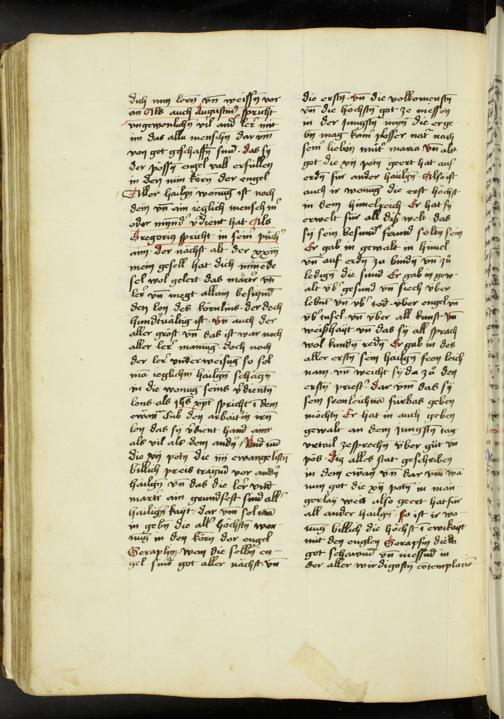 dich nun lern vn̄ weissn̄ vor
an Als auch Augustinus spricht
vngewonlich vil and ler mit
im das alle menschn̄ dar vm̄
von got geschaffn̄ sind das sy
der possn̄ engel vall erfullen
in den nin korn der engel
Aller hailgn̄ wonug ist noch
dem vn̄ ain ieglich mensch mer
oder mynd' v'dient hat Als
Gregorius spricht in sein puch
am der nachst alt der xxiiij
mein gesell hat dich
sel wol gelert das marter vn̄
ler vn̄ megt allain besund
den lon des kornlins der doch
hundertualtig ist vn̄ auch der
aller grost vn̄ das ist war noch
aller ler' mainug doch noch
der ler' vnderweisug so sol
ma ieglichn̄ hailgn̄ schaczn̄
in die wonug seins v'dientn̄
lons als ihs xp̄s spricht i dem
ewan' Gib den arbaitn̄ irn̄
lon das sy v'dient hand ainē
als vil als dem andn̄ Und sid
die xij potn̄ die iiij ewangelistn̄
billich preis tragnd vor andn̄
hailgn̄ vn̄ das die ler vnd
martr ain grundfest sind all'
hailign kayt dar vm̄ sol ma
in gebn̄ die all' hochstn̄ won
nug in den korn der engel
Seraphin wem die selbn̄ en
gel sind got aller nachst vn̄
die erstn̄ vn̄ die volkomenstn̄
vn̄ die hochstn̄ got ze messen
in der Jungstn̄
by mag kain grosser nat' nach
sein liebn̄ mut' maria vn̄ als
got die xij potn̄ geert hat auf
erdn̄ fur ander hailgn̄ Also ist
auch ir wonug die erst hochst
in dem himelreich Er hat sy
erwelt fur all dis welt das
sy sein besund' freund soltn̄ sein
Er gab in gewalt in himel
vn̄ auf erdn̄ zu bindn̄ vn̄ zu
ledign̄ die sund Er gab in gew
alt vb' gesund vn̄ siech vber
lebnt vn̄ vb' tod vber engel vn̄
vb' tufel vn̄ vber all kunst vn̄
weißhayt vn̄ das sy all sprach
wol kundn̄ redn̄ Er gab in des
aller erstn̄ sein hailgn̄ fron leich
nam vn̄ weicht sy da zu den
erstn̄ priest' dar vm̄ das sy
sein fronleichna furbas geben
mochtn̄ Er hat in auch geben
gewalt an dem Jungstn̄ tag
vrtail zesprechn̄ vber gut vn̄
pos Dis alles stat geschriben
in dem ewan' vn̄ dar vm̄ wa
nun got die xij potn̄ in man
gerlay weis also geert hat fur
all ander hailgn̄ so ist ir wo
nug billich die hochst i ewikayt
mit den englen Seraphin die da
got schawend vn̄ messend in
der aller wirdigostn̄ contemplacio